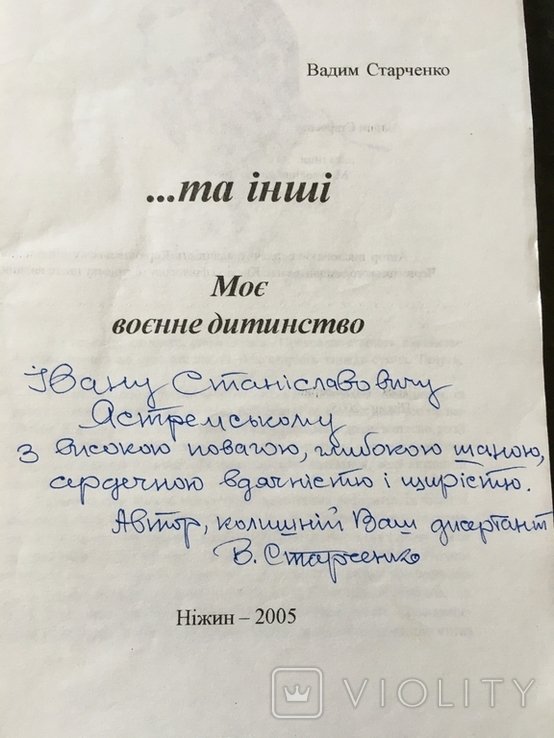 Вадим Старченко
...та інші
Моє
воєнне дитинство
Івану Станіславовичу
Ястремському
з високою повагою, глибокою шаною,
сердечною вдячністю і щирістю.
Автор, колишній Ваш дисертант
В. Старченко
Ніжин – 2005
VIOLITY